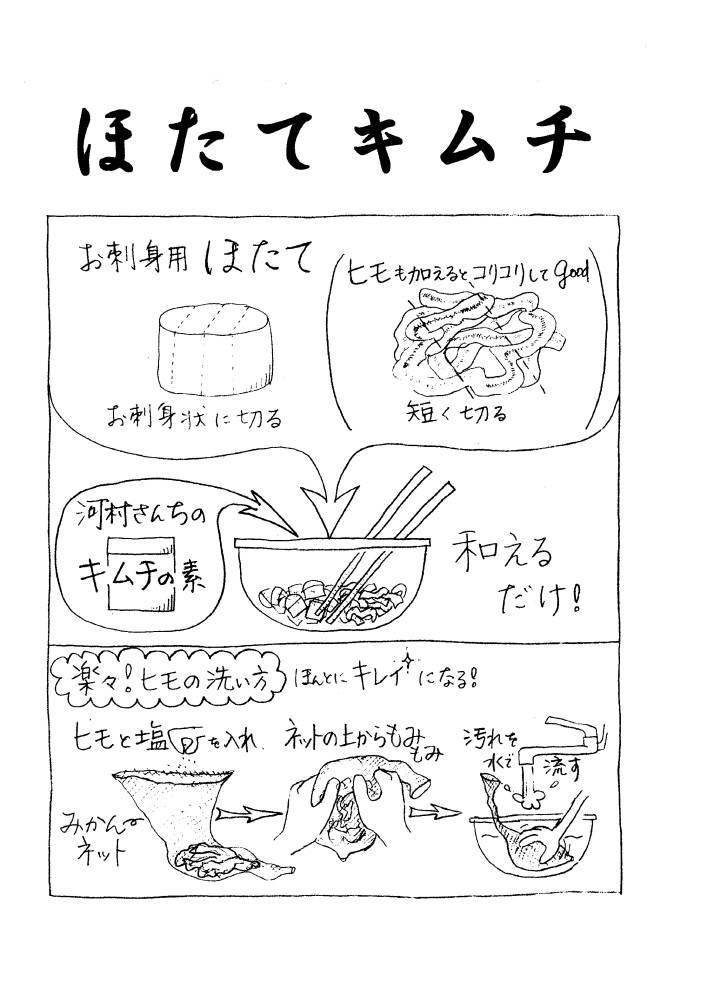 ほたてキムチ
お刺身用ほたて
お刺身状に切る
ヒモも加えるとコリコリしてgood
短く切る
河村さんちの
キムチの素
和える
だけ!
楽々!ヒモの洗い方
ほんとにキレイになる!
ヒモと塩を入れ
みかんの
ネット
ネットの上からもみ
もみ
汚れを
水で
流す